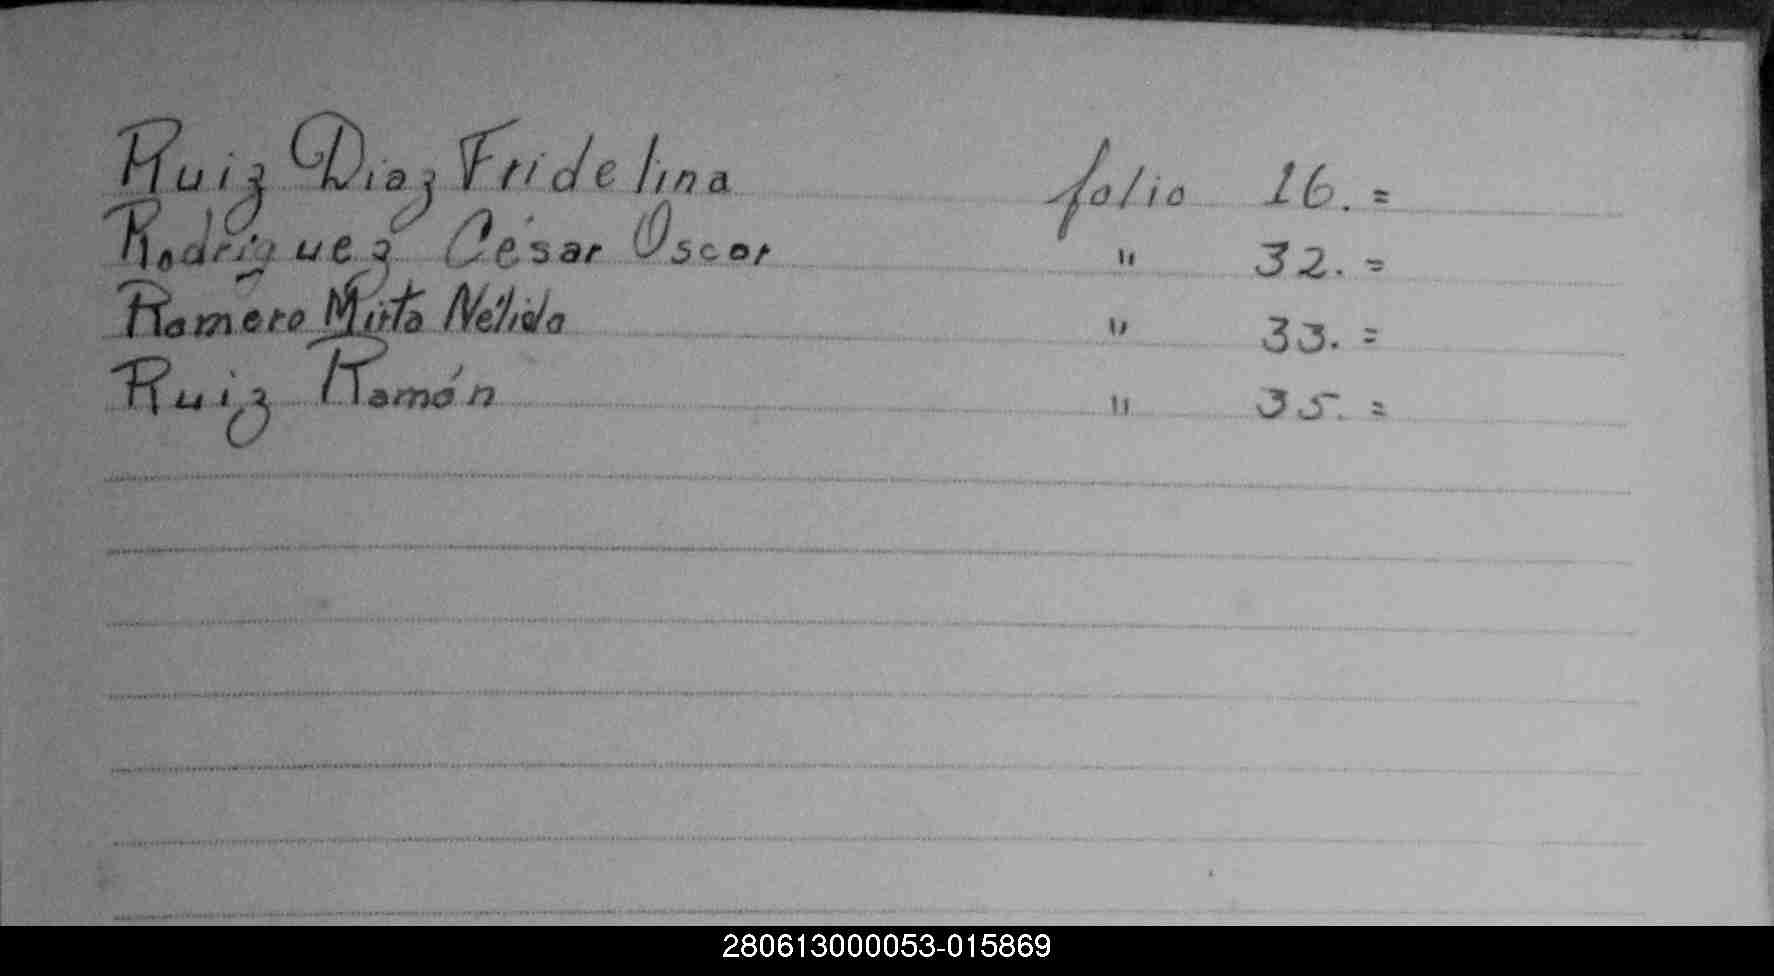 Ruiz Diaz Fridelina folio 16.=
Rodriguez César Oscar " 32.=
Romero Mirta Nélida " 33.=
Ruiz Ramón " 35.=
280613000053-015869